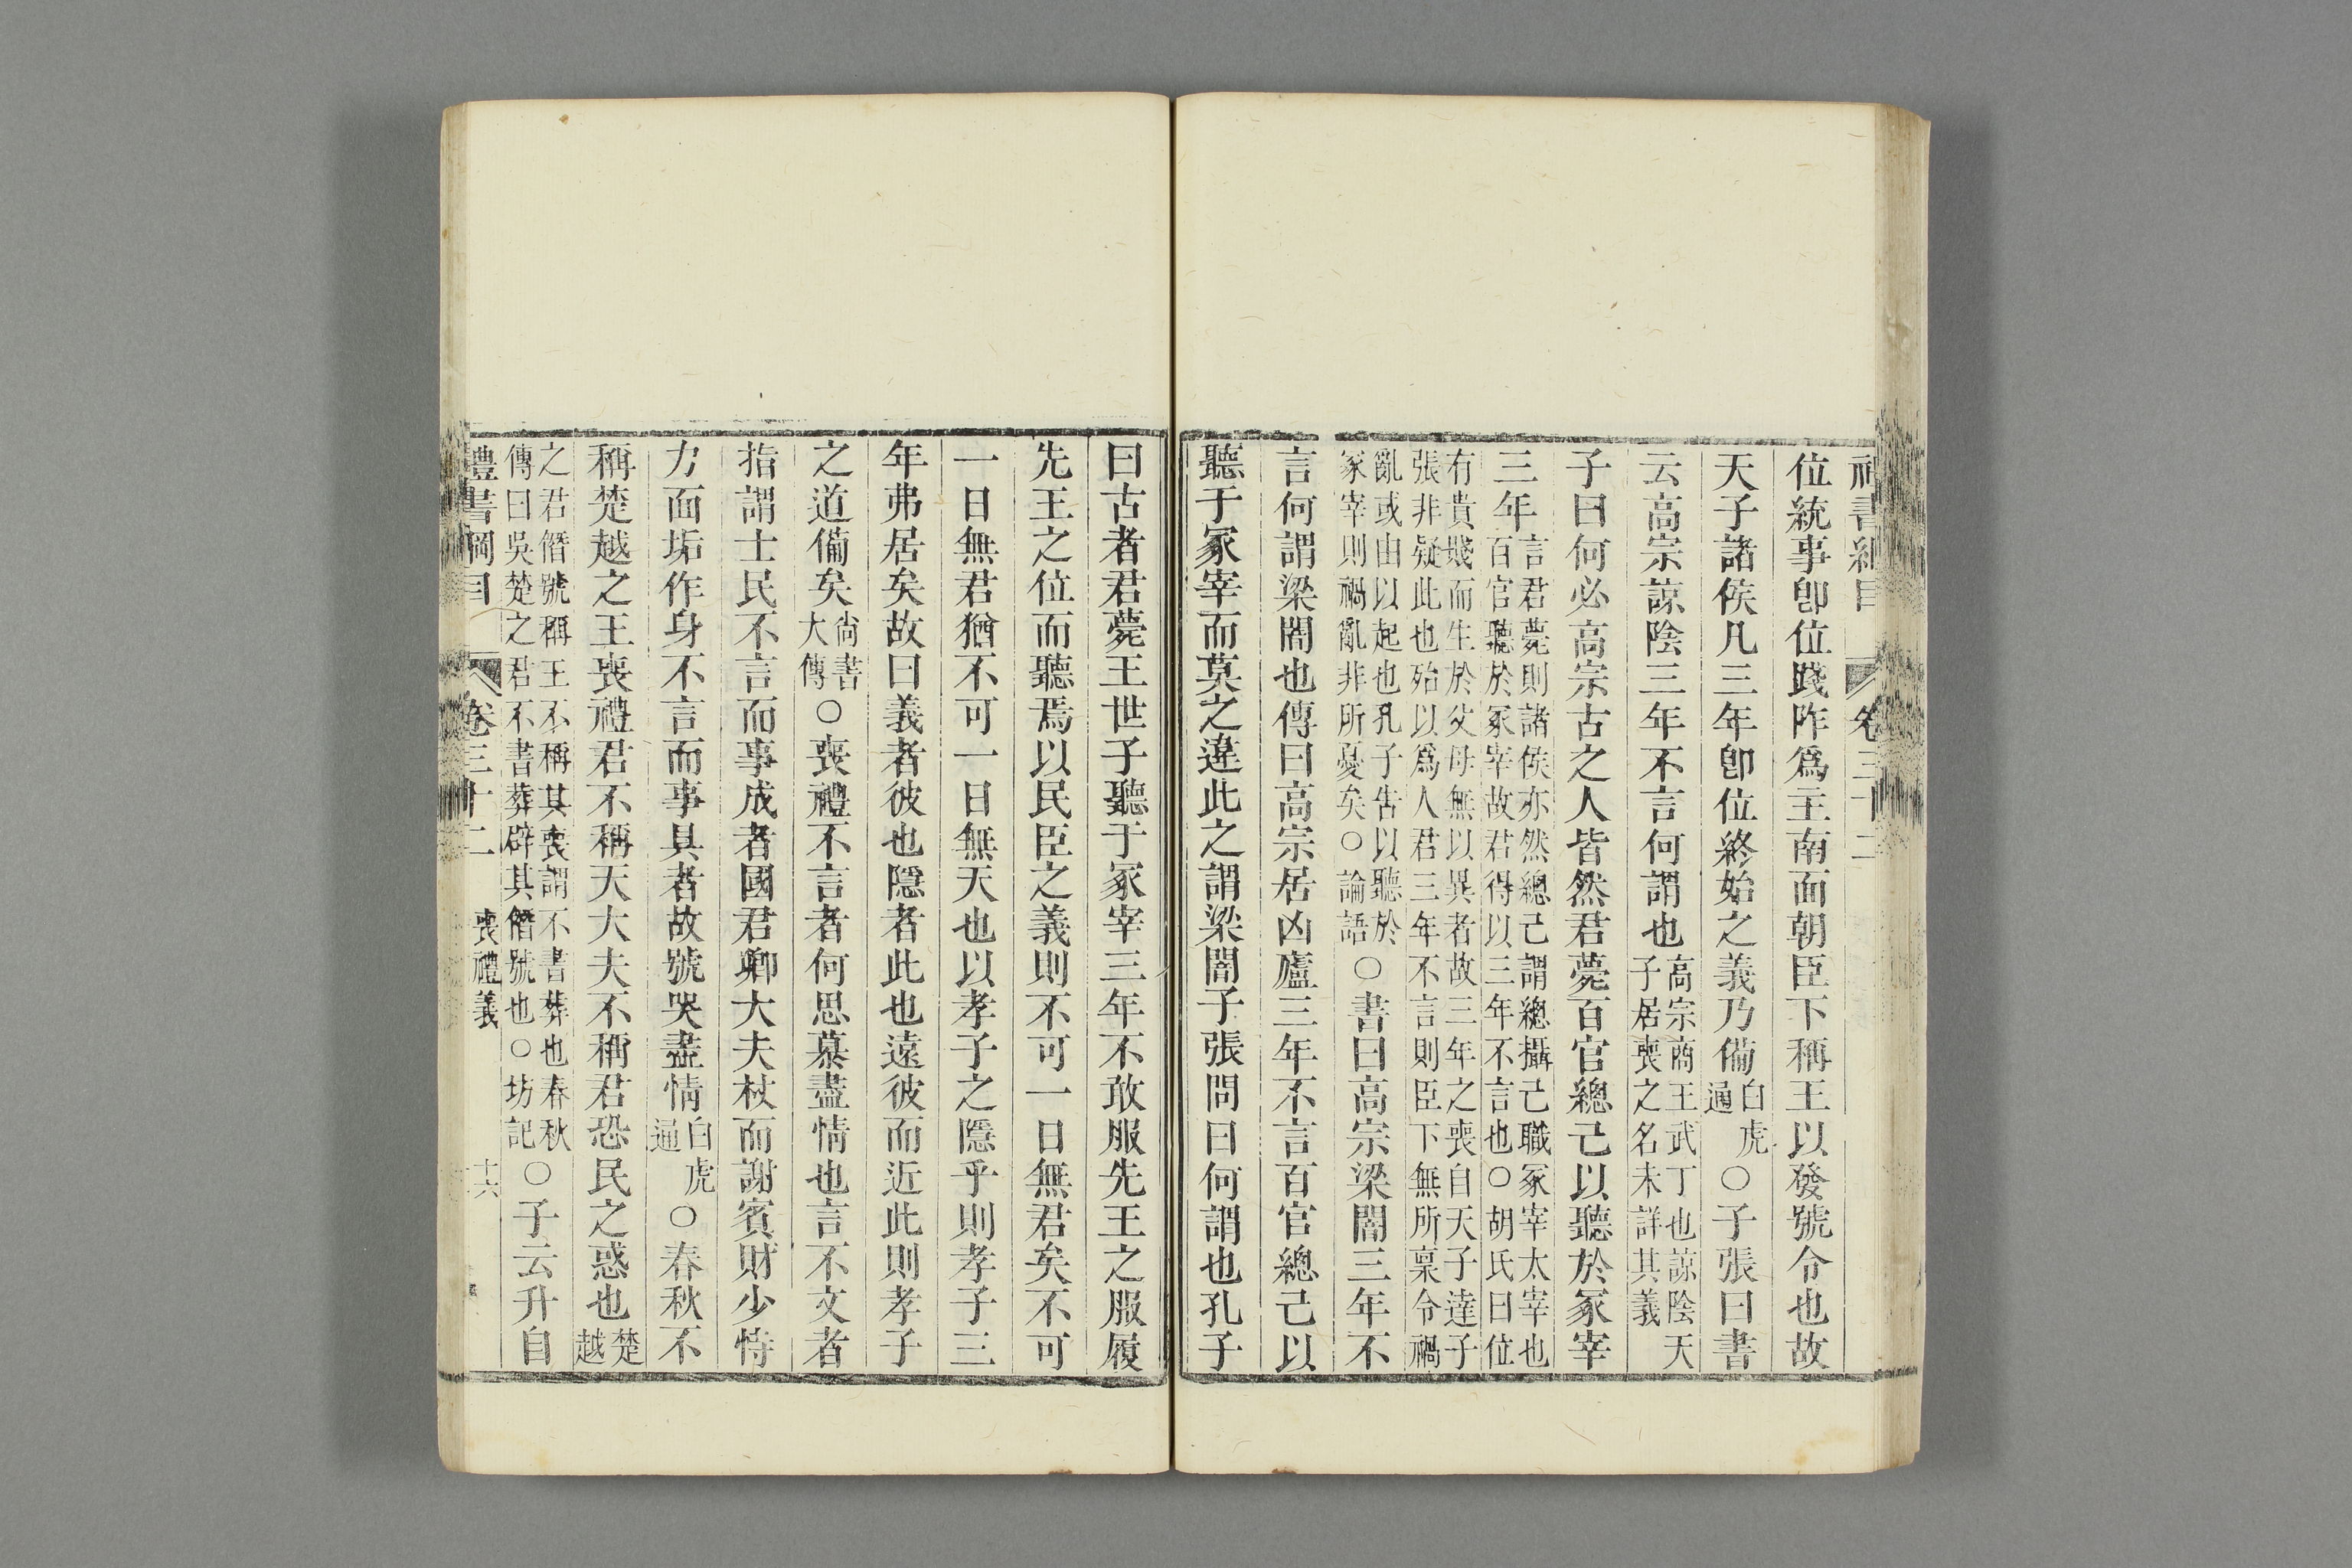 禮書綱目 卷三十二
位統事卽位踐阼爲主南面朝臣下稱王以發號令也故
天子諸侯凡三年卽位終始之義乃備白虎通○子張曰書
云高宗諒陰三年不言何謂也高宗商王武丁也諒陰天子居喪之名未詳其義
子曰何必高宗古之人皆然君薨百官總己以聽於冢宰
三年言君薨則諸侯亦然總己謂總攝己職冢宰太宰也百官聽於冢宰故君得以三年不言也○胡氏曰位
有貴賤而生於父母無以異者故三年之喪自天子達子張非疑此也殆以爲人君三年不言則臣下無所稟令禍
亂或由以起也孔子告以聽於冢宰則禍亂非所憂矣○論語○書曰高宗梁闇三年不
言何謂梁闇也傳曰高宗居凶廬三年不言百官總己以
聽于冢宰而莫之違此之謂梁闇子張問曰何謂也孔子
曰古者君薨王世子聽于冢宰三年不敢服先王之服履
先王之位而聽焉以民臣之義則不可一日無君矣不可
一日無君猶不可一日無天也以孝子之隱乎則孝子三
年弗居矣故曰義者彼也隱者此也遠彼而近此則孝子
之道備矣尙書大傳○喪禮不言者何思慕盡情也言不文者
指謂士民不言而事成者國君卿大夫杖而謝賓財少恃
力面垢作身不言而事具者故號哭盡情白虎通○春秋不
稱楚越之王喪禮君不稱天大夫不稱君恐民之惑也楚越
之君僭號稱王不稱其喪謂不書葬也春秋傳曰吳楚之君不書葬辟其僭號也○坊記○子云升自
禮書綱目 卷三十二 喪禮義 十六